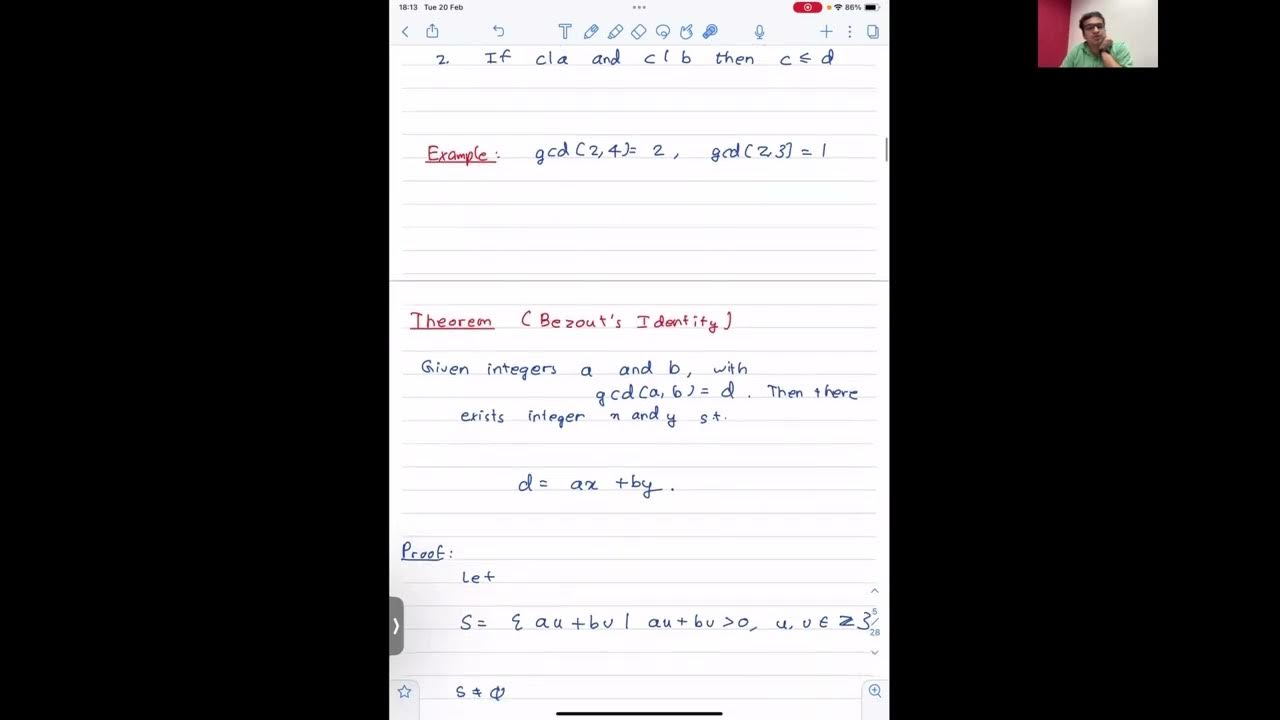 18:13 Tue 20 Feb
86%
2. If c|a and c|b then c ≤ d
Example: gcd(2,4) = 2, gcd(2,3) = 1
Theorem (Bezout's Identity)
Given integers a and b, with
gcd(a,b) = d. Then there
exists integer x and y st.
d = ax + by.
Proof:
Let
S = { au + bv | au + bv > 0, u, v ∈ Z }
5/28
S ≠ φ